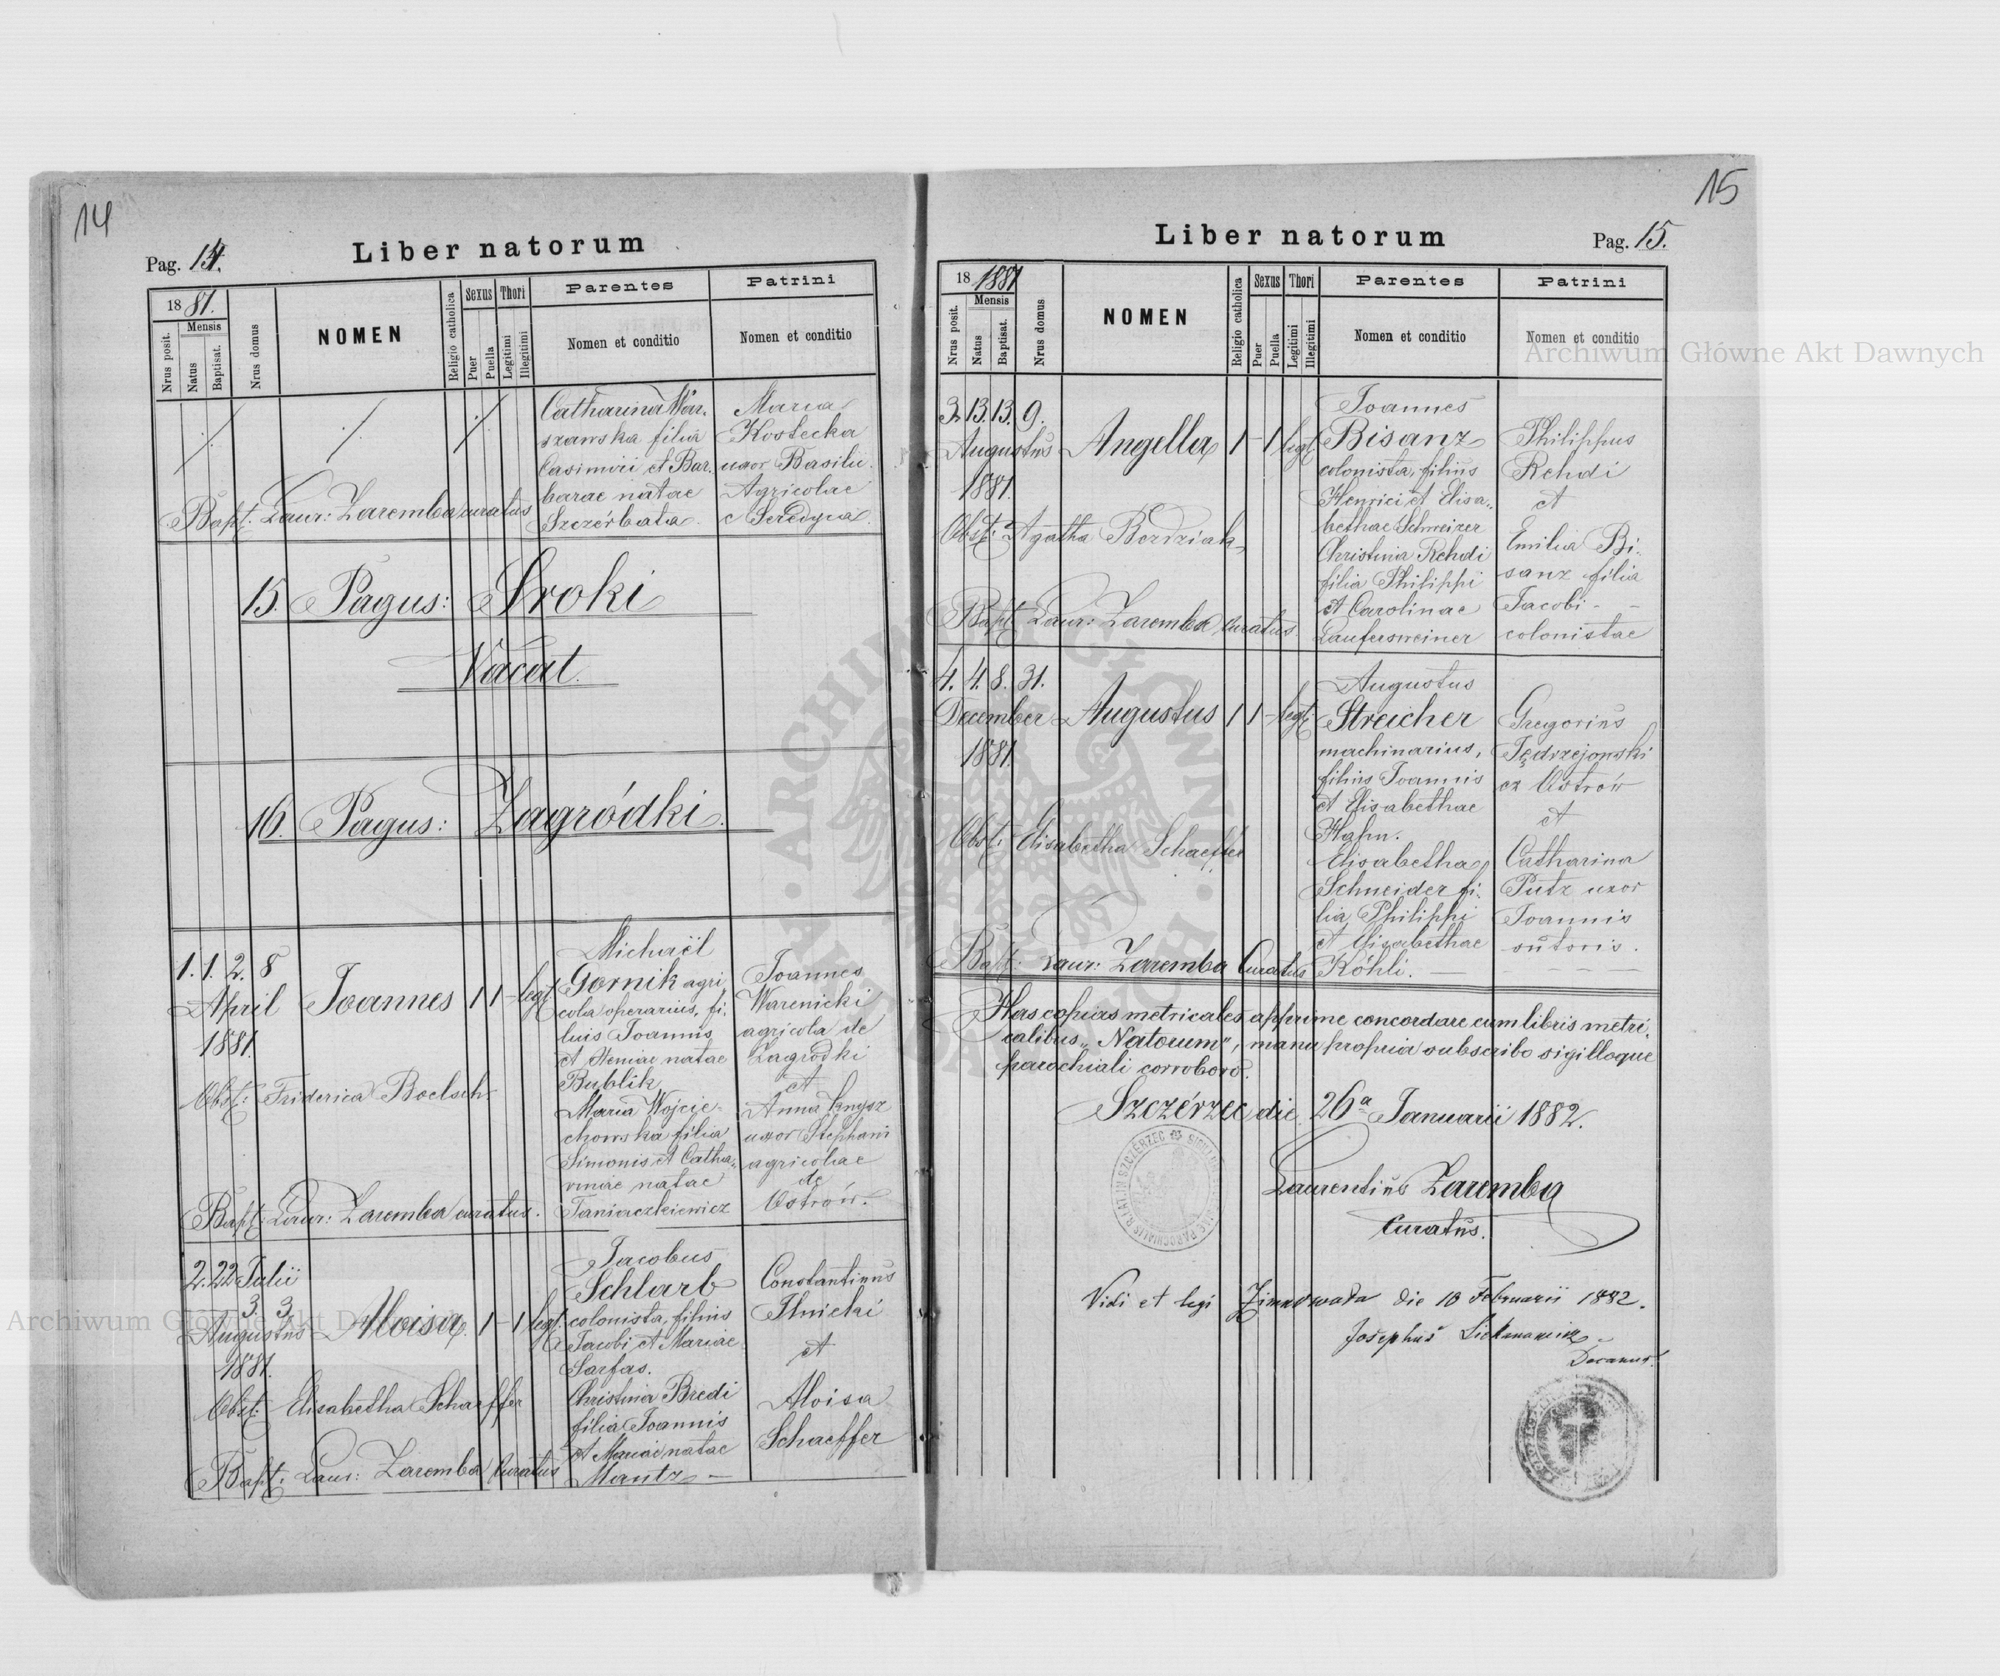 14
Pag. 14.
Liber natorum
18 81.
Nrus posit.
Mensis
Natus
Baptisat.
Nrus domus
NOMEN
Religio catholica
Sexus
Puer
Puella
Thori
Legitimi
Illegitimi
Parentes
Nomen et conditio
Patrini
Nomen et conditio
Catharina War-
szawska filia
Casimiri et Bar-
barae natae
Szczérbata.
Maria
Kostecka
uxor Basilii
Agricolae
e Seredyca.
Bapt: Laur: Zaremba curatus
15. Pagus: Sroki
Vacat.
16. Pagus: Zagródki.
1. 1. 2. 8
April
1881.
Joannes 1 1 - legt
Michaël
Gornik agri
cola operarius, fi-
lius Joannis
et Xeniae natae
Bublik
Maria Wojcie-
chowska filia
Simonis et Catha-
rinae natae
Taniaczkiewicz
Joannes
Warenicki
agricola de
Zagrodki
et
Anna Knysz
uxor Stephani
agricolae
de
Ostrów.
Obst: Friderica Boelsch
Bapt: Laur: Zaremba curatus.
2. 22 Julii
3. 3.
Augustus
1881.
Aloisia. 1 - 1 legt.
Jacobus
Schlarb
colonista, filius
Jacobi et Mariae
Sarfas.
Christina Bredi
filia Joannis
et Mariae natae
Mantz -
Constantinus
Ilnicki
et
Aloisa
Schaeffer
Obst: Elisabetha Schaeffer
Bapt: Laur: Zaremba Curatus
15
Liber natorum
Pag. 15.
18 1881
Nrus posit.
Mensis
Natus
Baptisat.
Nrus domus
NOMEN
Religio catholica
Sexus
Puer
Puella
Thori
Legitimi
Illegitimi
Parentes
Nomen et conditio
Patrini
Nomen et conditio
3. 13. 13. 9.
Augustus
1881.
Angella 1 - 1 legt
Joannes
Bisanz
colonista, filius
Henrici et Elisa-
bethae Schweizer
Christina Rehdi
filia Philippi
et Carolinae
Laufersweiner
Philippus
Rehdi
et
Emilia Bi-
sanz filia
Jacobi - -
colonistae
Obst: Agatha Berdziak
Bapt: Laur: Zaremba Curatus.
4. 4. 8. 31.
December
1881.
Augustus 1 1 - legt.
Augustus
Streicher
machinarius,
filius Joannis
et Elisabethae
Hahn.
Elisabetha
Schneider fi-
lia Philippi
et Elisabethae
Köhli. -
Gregorius
Jędrzejowski
ex Ostrów
et
Catharina
Putz uxor
Joannis
sutoris.
Obst: Elisabetha Schaeffer
Bapt: Laur: Zaremba Curatus
Has copias metricales apprime concordare cum libris metri-
calibus „Natorum", manu propria subscribo sigilloque
parochiali corroboro.
Szczérzec die 26a Januarii 1882.
Laurentius Zaremba
Curatus.
Vidi et legi Zimnawoda die 10 Februarii 1882.
Josephus
Decanus.
Archiwum Główne Akt Dawnych
Archiwum Główne Akt Dawnych